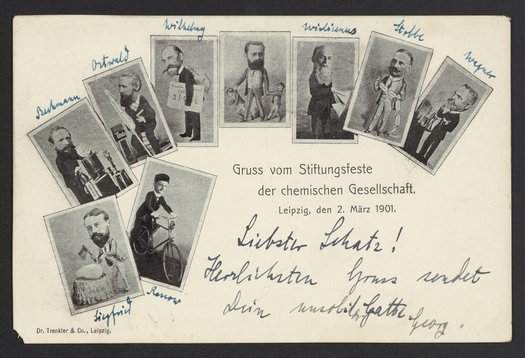 Beckmann
Ostwald
Wislicenus
Stobbe
Wagner
Gruss vom Stiftungsfeste
der chemischen Gesellschaft.
Leipzig, den 2. März 1901.
Liebster Schatz!
Herzlichsten Gruss sendet
Dein Gatte
Georg.
Siegfried
Dr. Trenkler & Co., Leipzig.